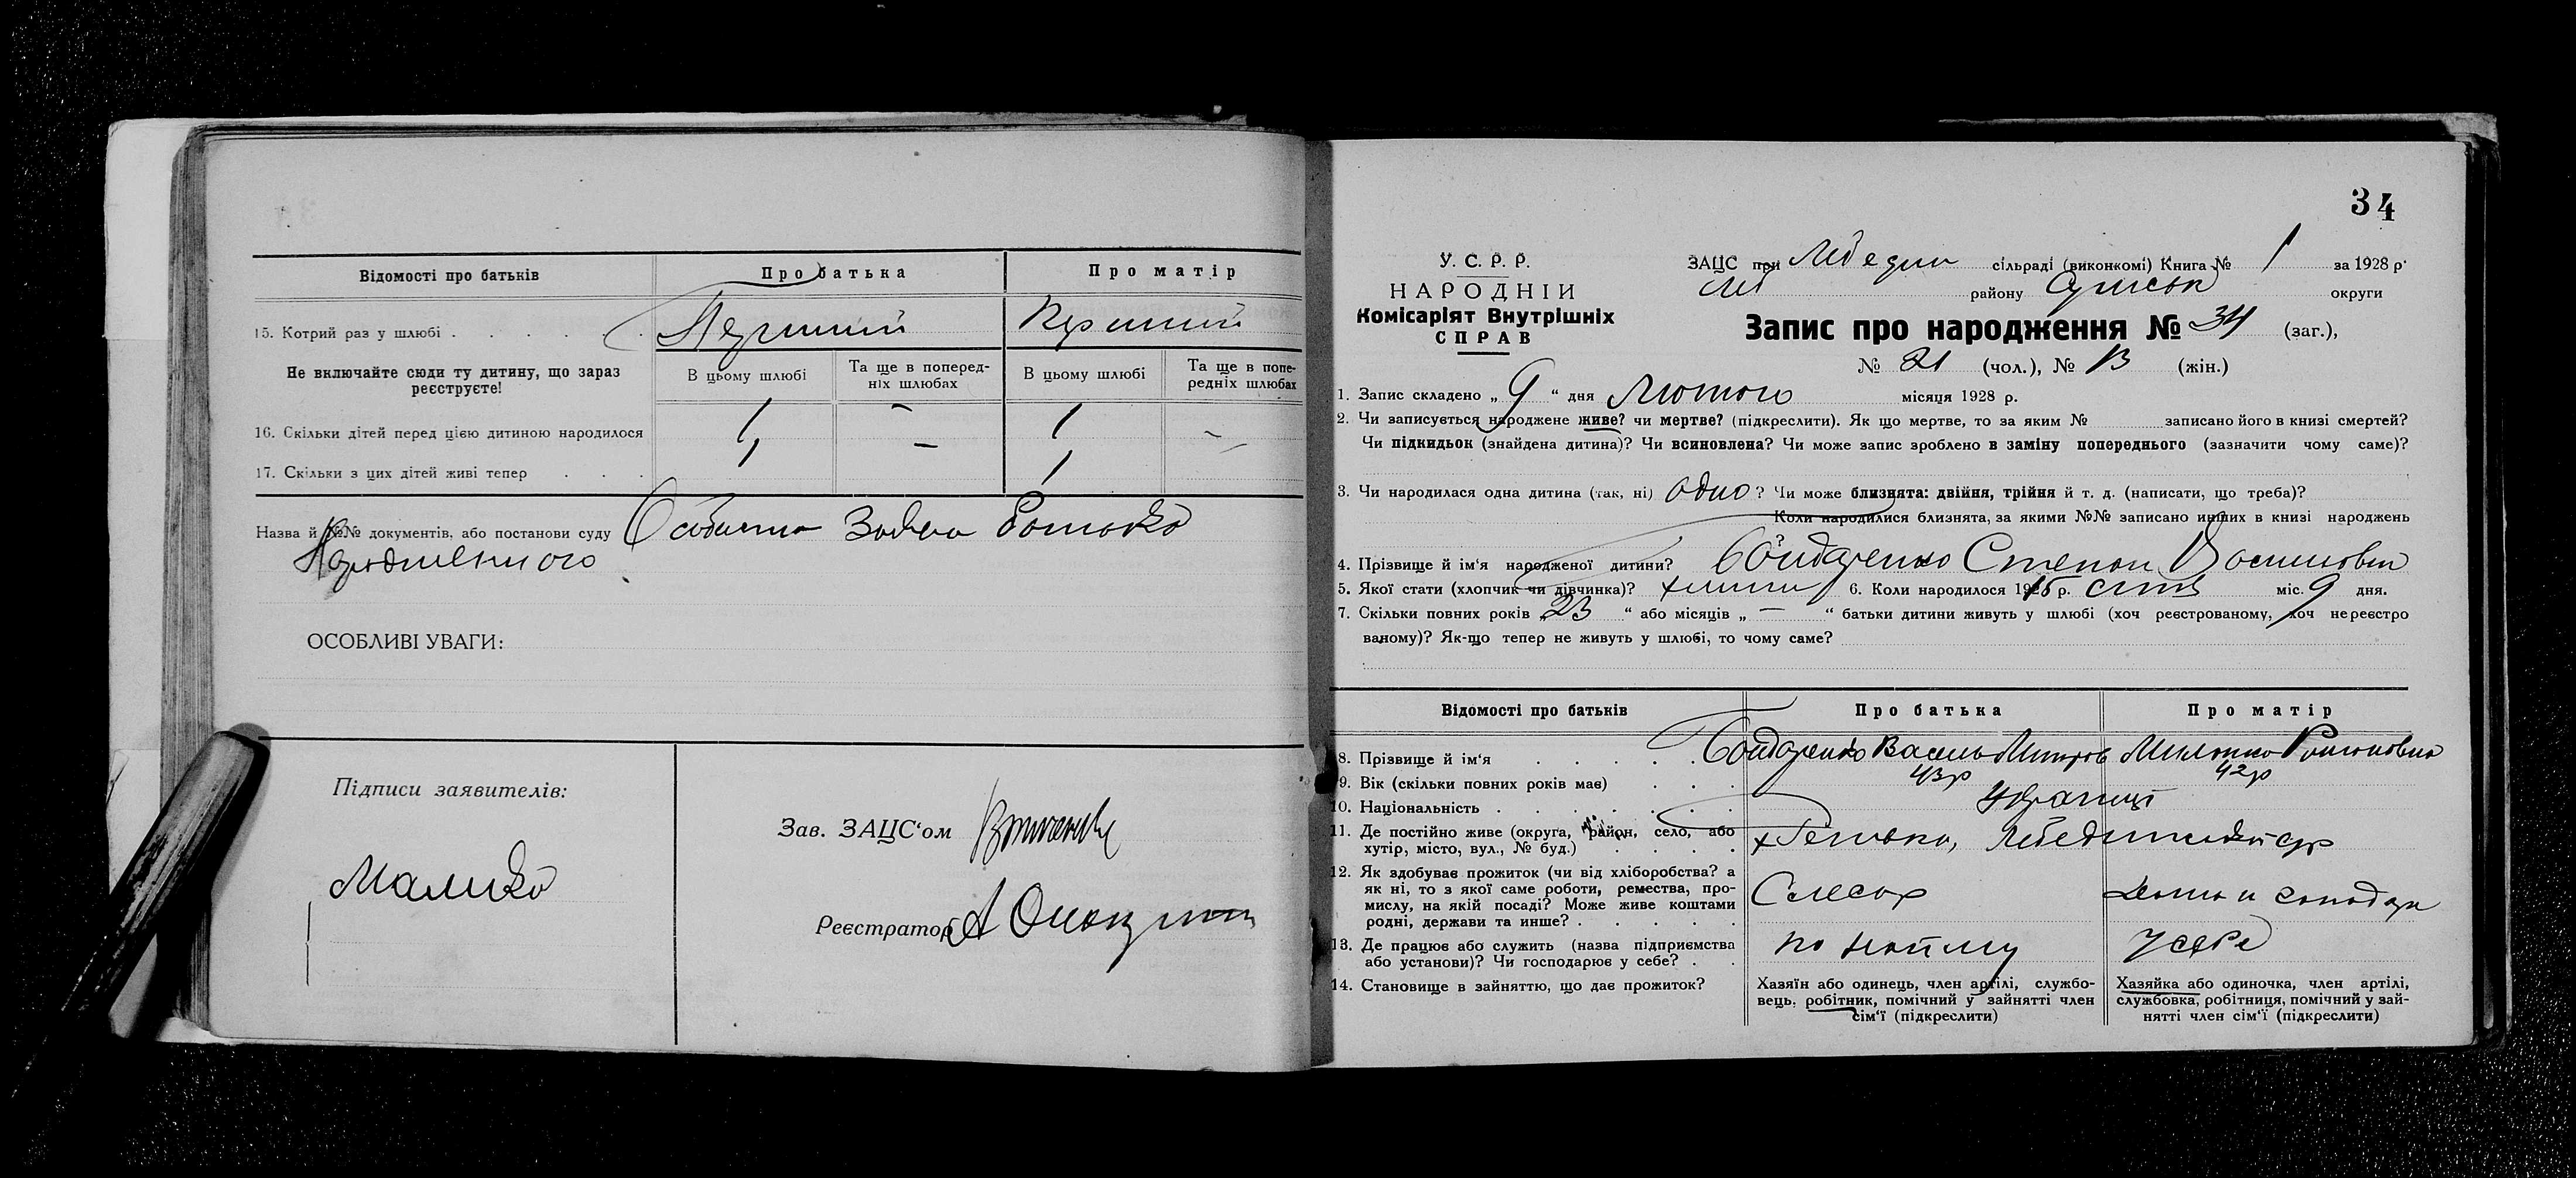 Відомості про батьків
Про батька
Про матір
15. Котрий раз у шлюбі . . . . .
Перший
Перший
Не включайте сюди ту дитину, що зараз реєструєте!
В цьому шлюбі
Та ще в поперед-
ніх шлюбах
В цьому шлюбі
Та ще в попе-
редніх шлюбах
16. Скільки дітей перед цією дитиною народилося
1 — 1 —
17. Скільки з цих дітей живі тепер . . .
1 — 1 —
Назва й №№ документів, або постанови суду Особиста Заява Батька
Народженого
ОСОБЛИВІ УВАГИ:
Підписи заявителів:
Зав. ЗАЦС'ом
Реєстратор
34
У. С. Р. Р.
НАРОДНІЙ
Комісаріят Внутрішніх
СПРАВ
ЗАЦС при Лебедин сільраді (виконкомі) Книга № 1 за 1928 р.
Леб району Сумськ округи
Запис про народження № 34 (заг.),
№ 21 (чол.), № 13 (жін.)
1. Запис складено „ 9 “ дня Лютого місяця 1928 р.
2. Чи записується народжене живе? чи мертве? (підкреслити). Як що мертве, то за яким № записано його в книзі смертей?
Чи підкидьок (знайдена дитина)? Чи всиновлена? Чи може запис зроблено в заміну попереднього (зазначити чому саме)?
3. Чи народилася одна дитина (так, ні) одно ? Чи може близнята: двійня, трійня й т. д. (написати, що треба)?
Коли народилися близнята, за якими №№ записано инших в книзі народжень
4. Прізвище й ім'я народженої дитини? Бондаренко Степан Васильович
5. Якої стати (хлопчик чи дівчинка)? 6. Коли народилося р. міс. 9 дня.
7. Скільки повних років „ 23 “ або місяців „ — “ батьки дитини живуть у шлюбі (хоч реєстрованому, хоч нереєстро
ваному)? Як-що тепер не живуть у шлюбі, то чому саме?
Відомості про батьків
Про батька
Про матір
8. Прізвище й ім'я . . . . .
Бондаренко Василь Митров
9. Вік (скільки повних років має) . . .
43 р
42 р
10. Національність . . . . . . .
Українці
11. Де постійно живе (округа, район, село, або
хутір, місто, вул., № буд.) . . . .
12. Як здобуває прожиток (чи від хліборобства? а
як ні, то з якої саме роботи, ремества, про-
мислу, на якій посаді? Може живе коштами
родні, держави та инше? . . . . .
Слесар
13. Де працює або служить (назва підприємства
або установи)? Чи господарює у себе? . .
по найму
у себе
14. Становище в зайняттю, що дає прожиток?
Хазяїн або одинець, член артілі, службо-
вець, робітник, помічний у зайнятті член
сім'ї (підкреслити)
Хазяйка або одиночка, член артілі,
службовка, робітниця, помічний у зай-
нятті член сім'ї (підкреслити)